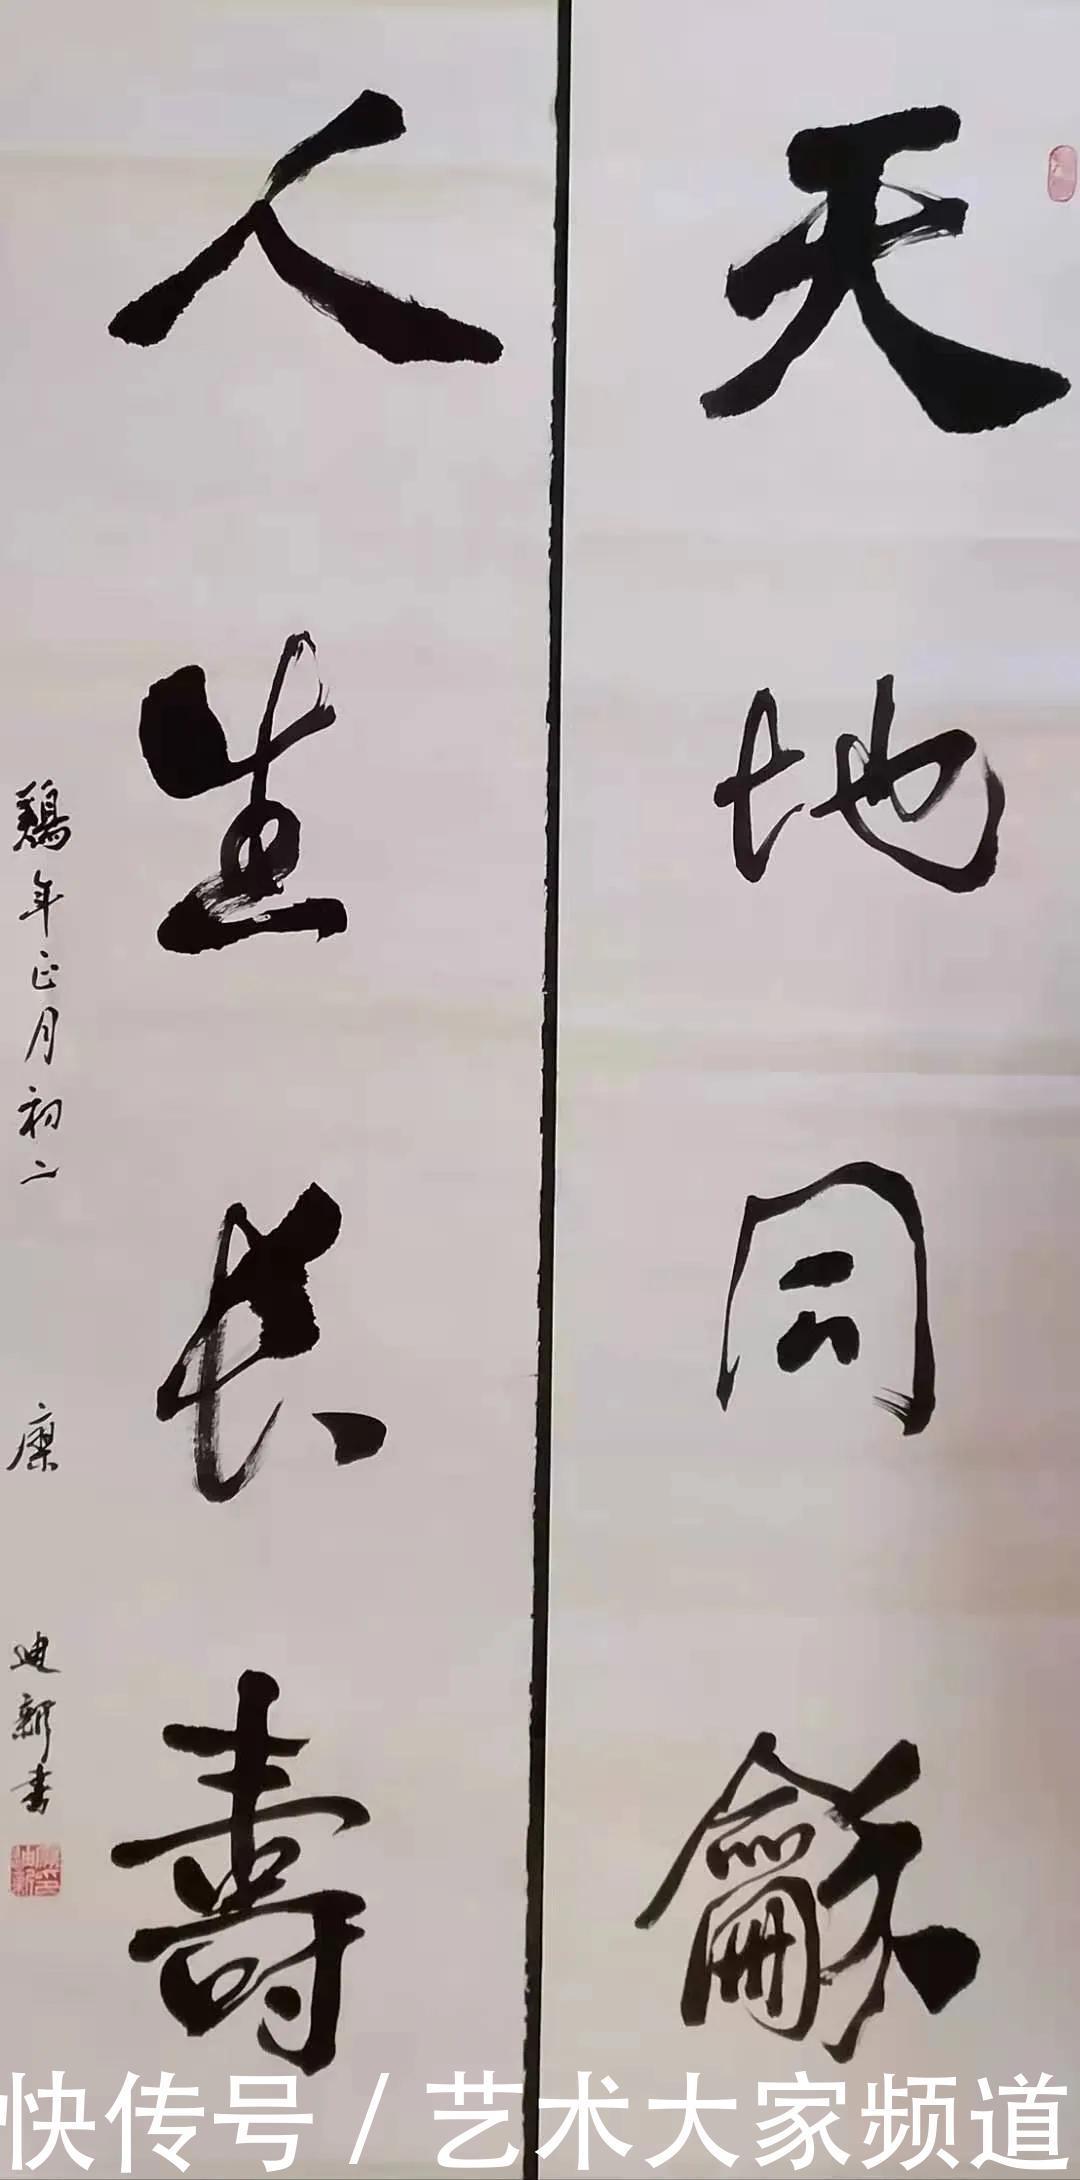 天地同龢
人生长壽
鷄年正月初二
廉
迪新书
快传号 / 艺术大家频道